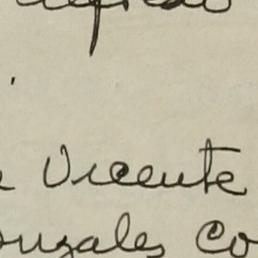 Vicente
onzales Co